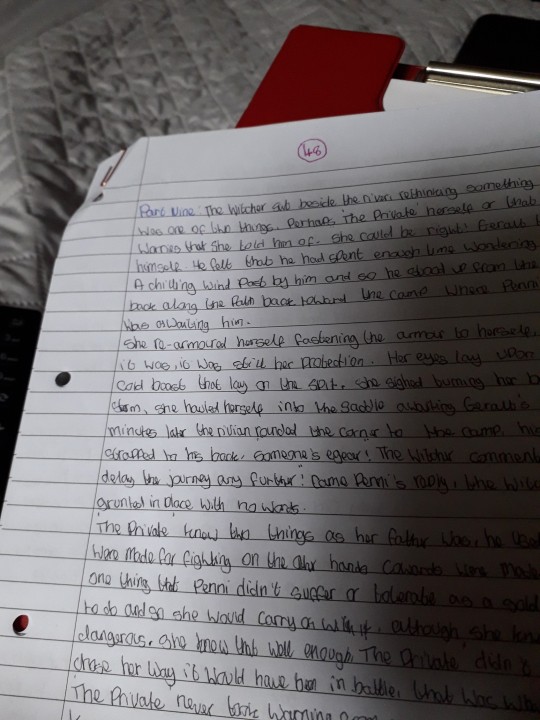 48
Part Nine: The Witcher sub beside the river rethinking something
was one of two things. Perhaps 'The Private' herself or that
Worries that she told him of. She could be right! Geralt
himself. He felt that he had spent enough time wondering
A chilling wind Past by him and so he stood up from the
back along the Path back toward the camp where Penni
was awaiting him.
She re-armoured herself fastening the armour to herself,
it was, it was still her Protection. Her eyes lay upon
Cold boast that lay on the spit, she sighed burning her b
she hauled herself into the Saddle awaiting Geralt's
minutes later the rivian rounded the corner to the camp, his
strapped to his back. Someone's egear! The Witcher comment
delay the journey any further! Came Penni's reply, the Witc
grunted in place with no words.
'The Private' knew two things as her father was, he used
Were made for fighting on the other hand, Cowards
one thing that Penni didn't suffer or tolerate as a sold
to do and so she would carry on with it, although she kn
dangerous, she knew that well enough, 'The Private' didn't
chose her way it would have been in battle, that was wh
'The Private' never took warning